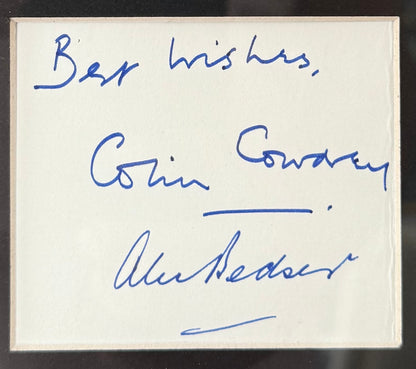 Best Wishes,
Colin Cowdrey
Alec Bedser